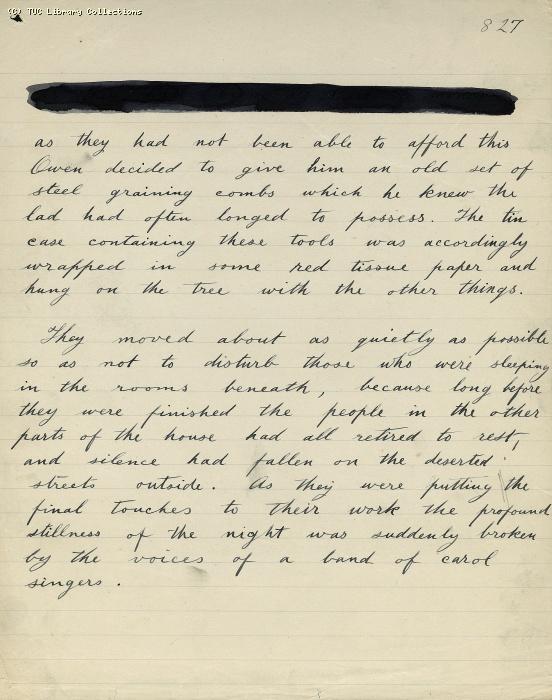 (C) TUC Library Collections
827
as they had not been able to afford this
Owen decided to give him an old set of
steel graining combs which he knew the
lad had often longed to possess. The tin
case containing these tools was accordingly
wrapped in some red tissue paper and
hung on the tree with the other things.
They moved about as quietly as possible
so as not to disturb those who were sleeping
in the rooms beneath, because long before
they were finished the people in the other
parts of the house had all retired to rest,
and silence had fallen on the deserted
streets outside. As they were putting the
final touches to their work the profound
stillness of the night was suddenly broken
by the voices of a band of carol
singers.